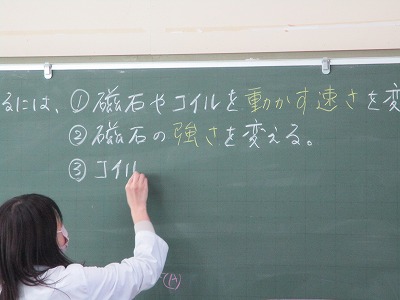 るには、①磁石やコイルを動かす速さを変
②磁石の強さを変える。
③コイル
(A)